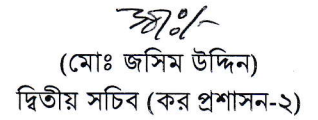 স্বাঃ/-
(মোঃ জসিম উদ্দিন)
দ্বিতীয় সচিব (কর প্রশাসন-২)